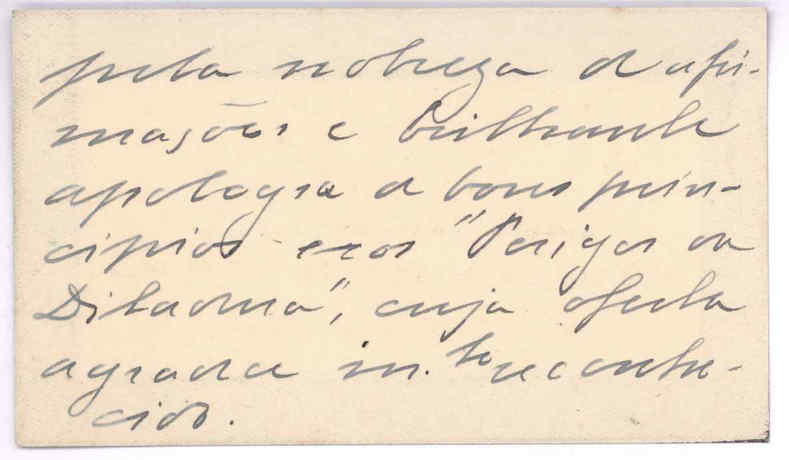 pela nobreza d afir-
mações e brilhante
apologia d bons prin-
cipios nos "Perigos da
Ditadura", cuja oferta
agradece m.to reconhe-
cido.